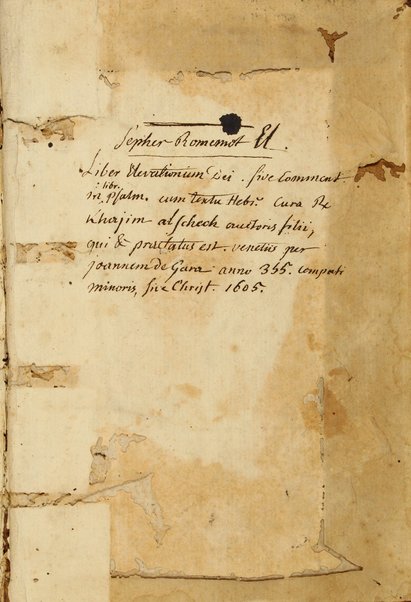 Sepher Romemot El.
Liber Elevationum Dei. sive Comment.
in libr. psalm. cum textu Hebr. cura R.
Khajim alschech auctoris filii,
qui & præfatus est. venetiis per
joannem de Gara anno 355. computi
minoris, sive Christ. 1605.